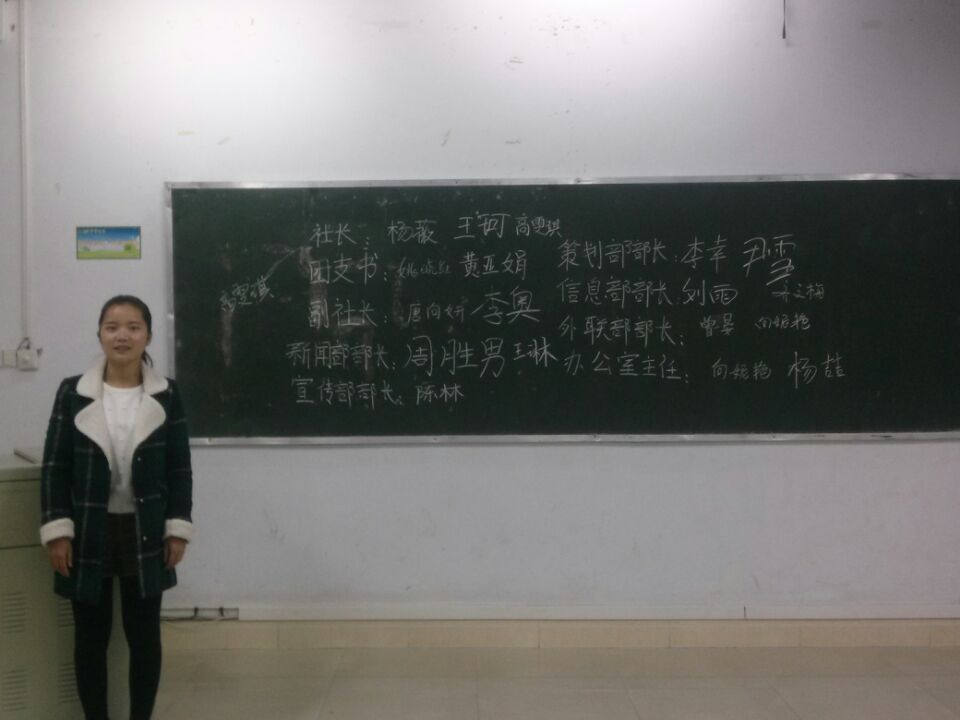 社长：杨薇 王珂 高雯琪
团支书： 黄亚娟
副社长：唐向妍 李奥
新闻部部长：周胜男 王琳
宣传部部长：陈林
策划部部长：李幸 尹雪
信息部部长：刘雨
外联部部长：曾晏 向妮艳
办公室主任：向妮艳 杨喆
高雯琪